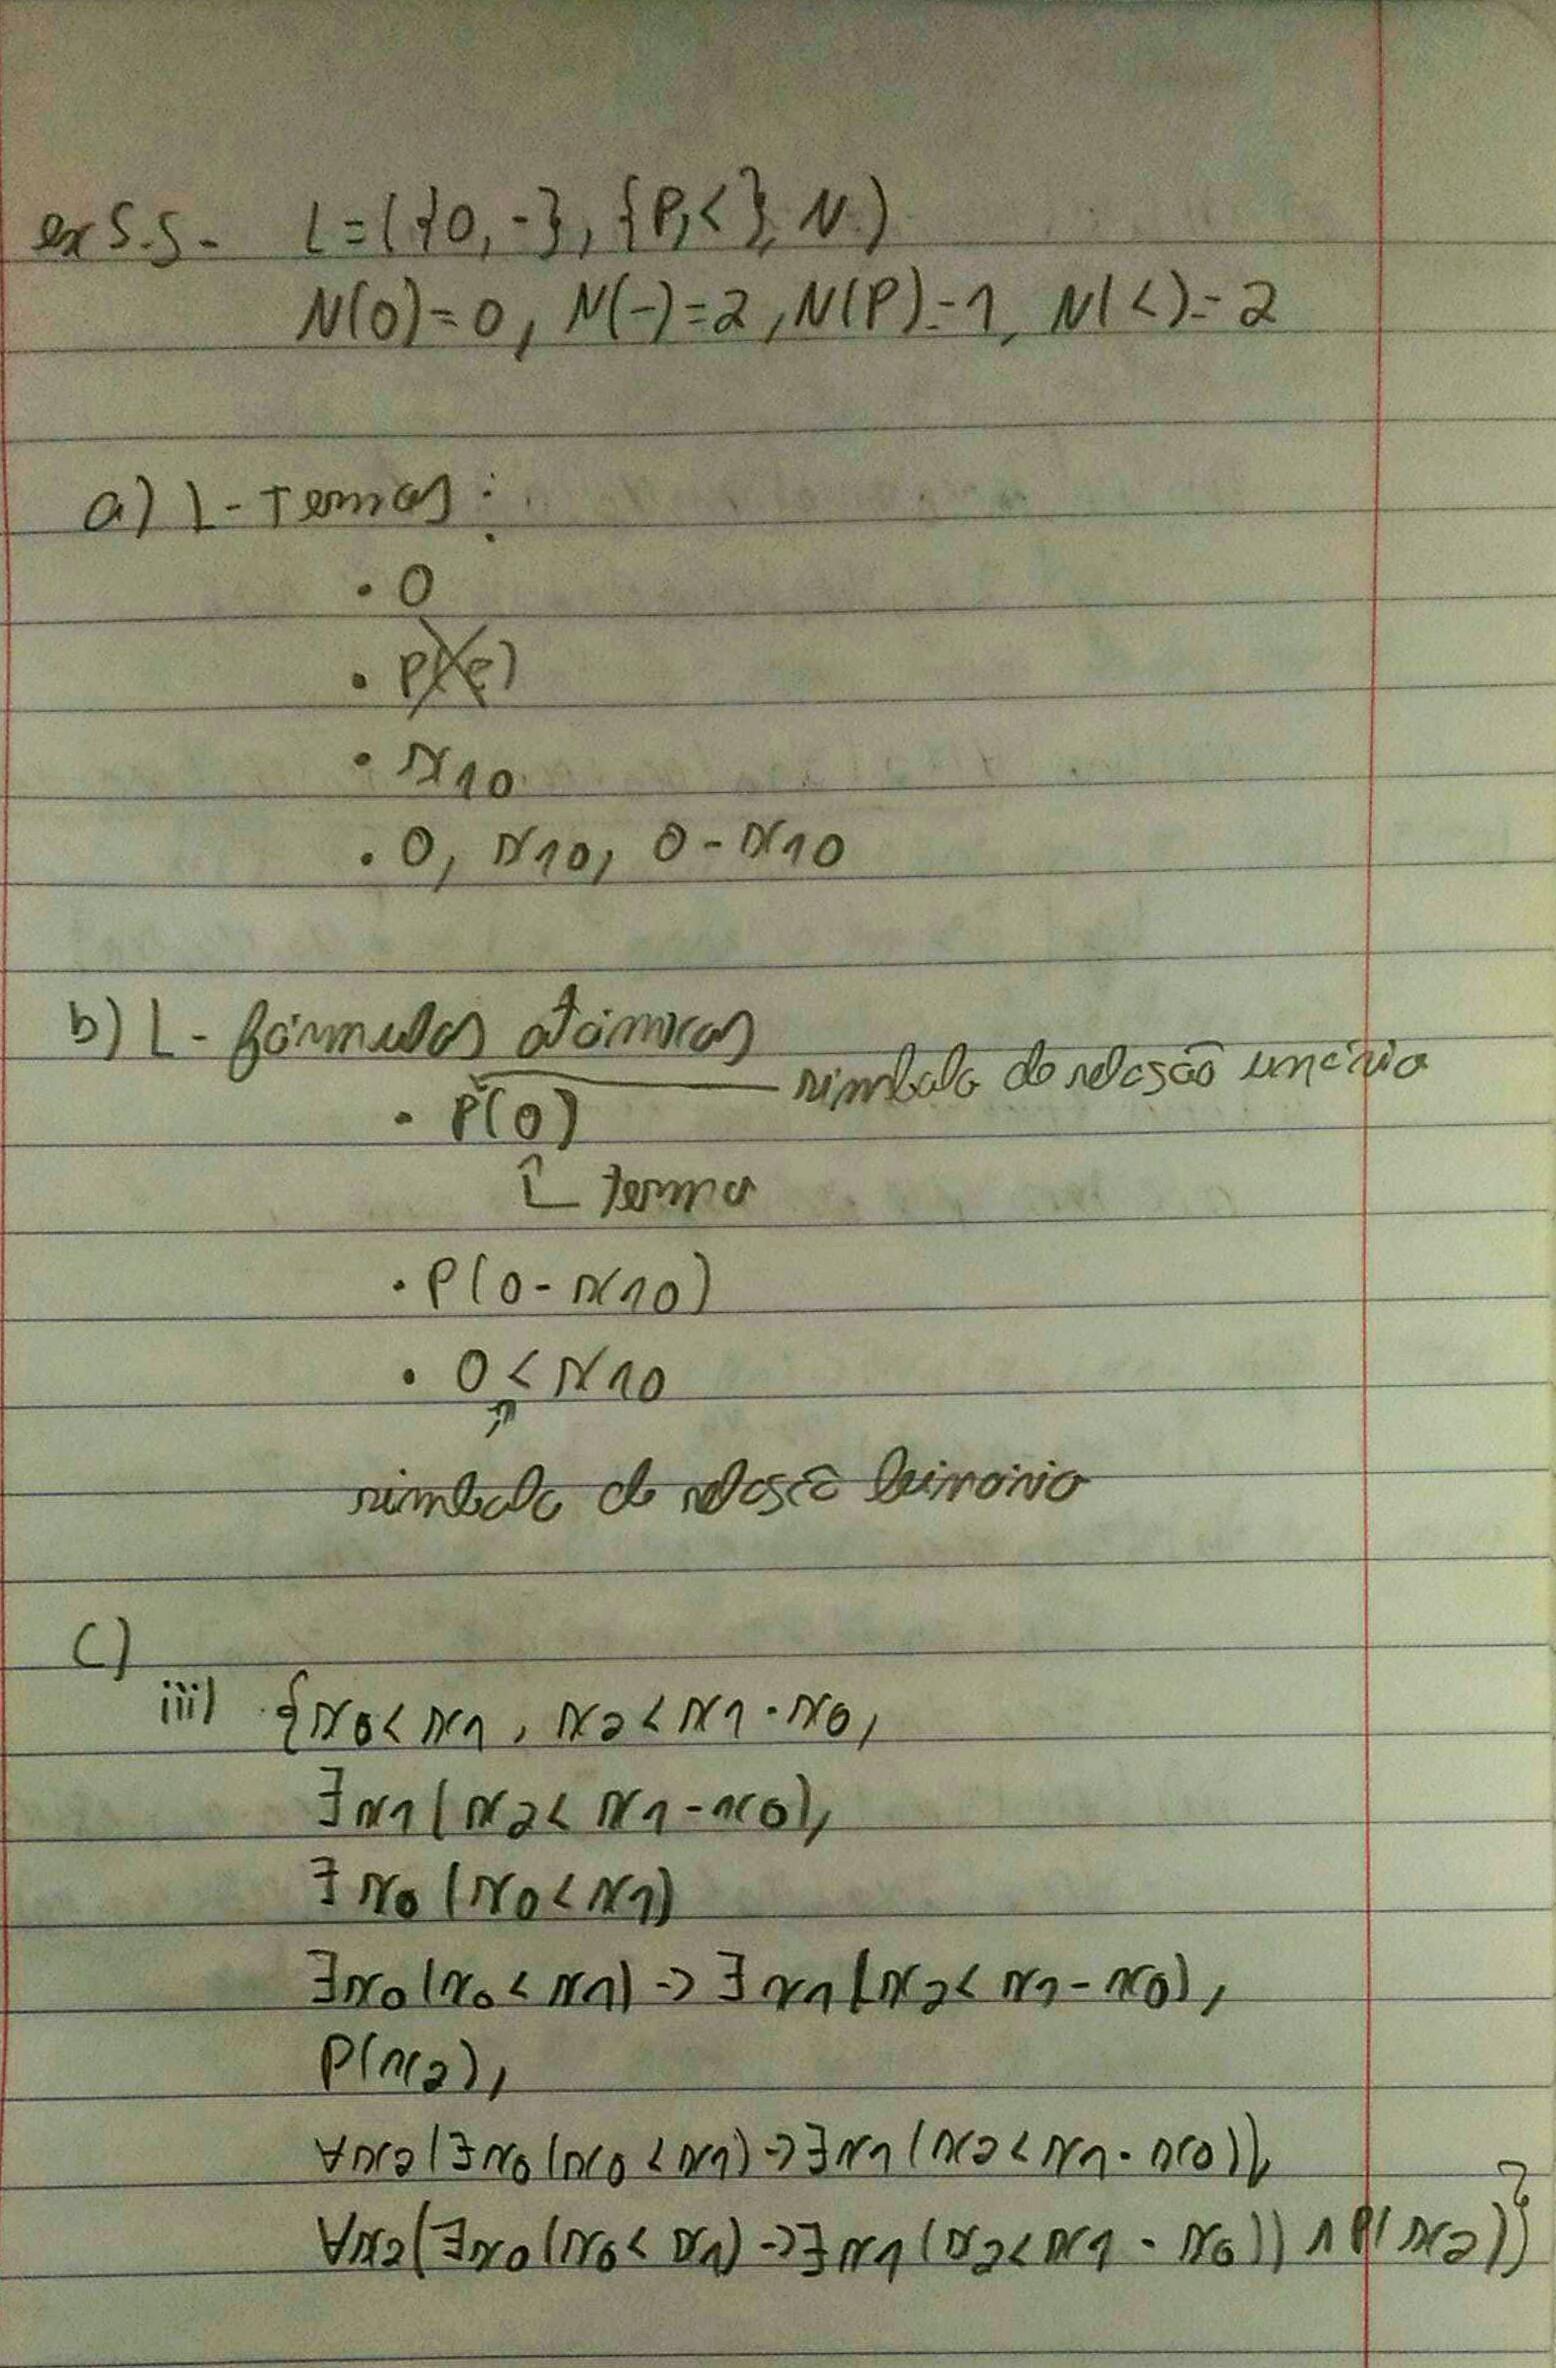 ex 5.5- L=({0,-},{P,<},N)
N(0)=0, N(-)=2, N(P)=1, N(<)=2
a) L-Termos:
• 0
• x10
• 0, x10, 0-x10
b) L- fórmulas atómicas
símbolo de relação unário
• P(0)
termo
• P(0-x10)
• 0<x10
símbolo de relação binário
c)
iii) {x0<x1, x2<x1-x0,
∃x1(x2<x1-x0),
∃x0(x0<x1)
∃x0(x0<x1)->∃x1(x2<x1-x0),
P(x2),
∀x2(∃x0(x0<x1)->∃x1(x2<x1-x0)),
∀x2(∃x0(x0<x1)->∃x1(x2<x1-x0))∧P(x2)}